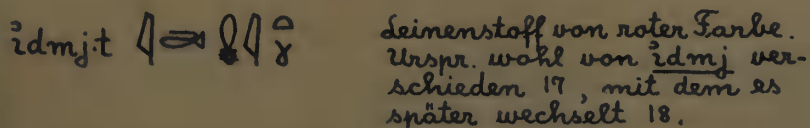 idmj.t 𓇋𓂧𓐛𓇋𓏏𓍱 Leinenstoff von roter Farbe.
Urspr. wohl von idmj ver-
schieden 17, mit dem es
später wechselt 18.